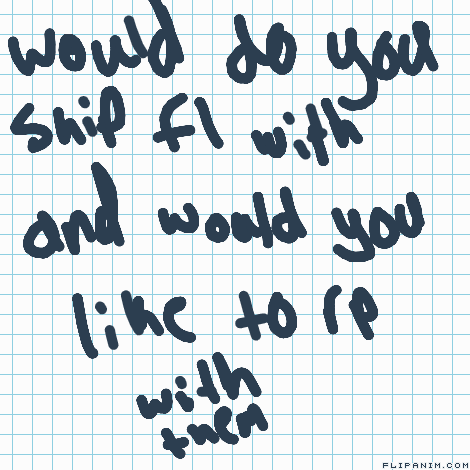 would do you
ship fl with
and would you
like to rp
with
them
FLIPANIM.COM